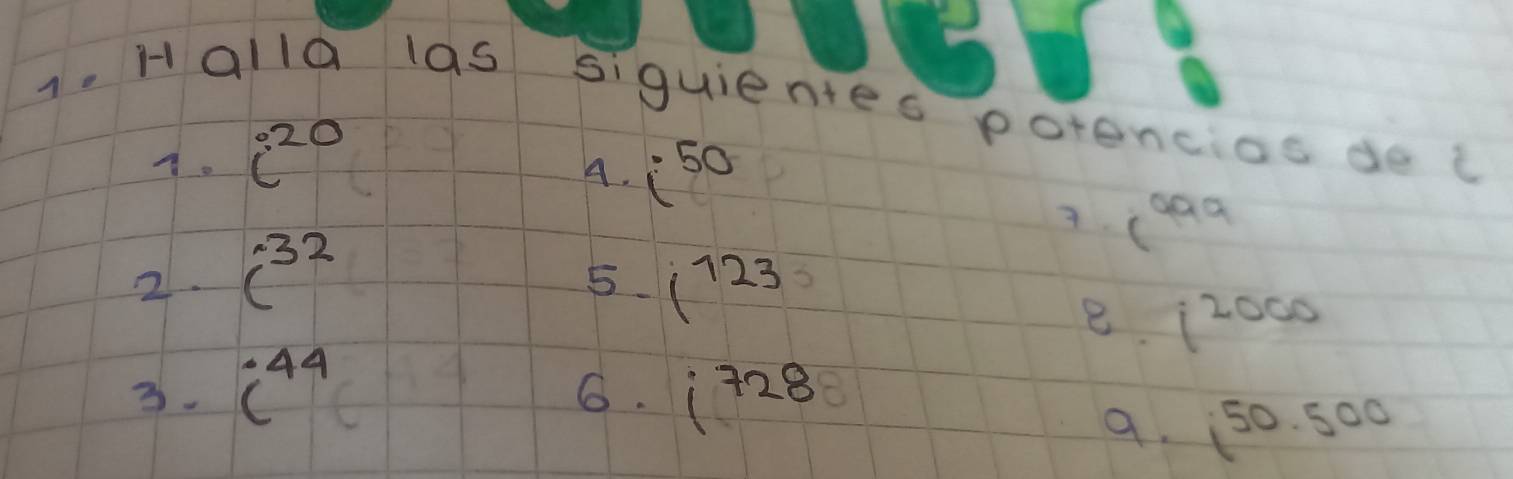 1. Halla las siguientes potencias de i
1. i^20
2. i^32
3. i^44
4. i^50
5. i^123
6. i^728
7. i^999
8. i^2000
9. i^50.500